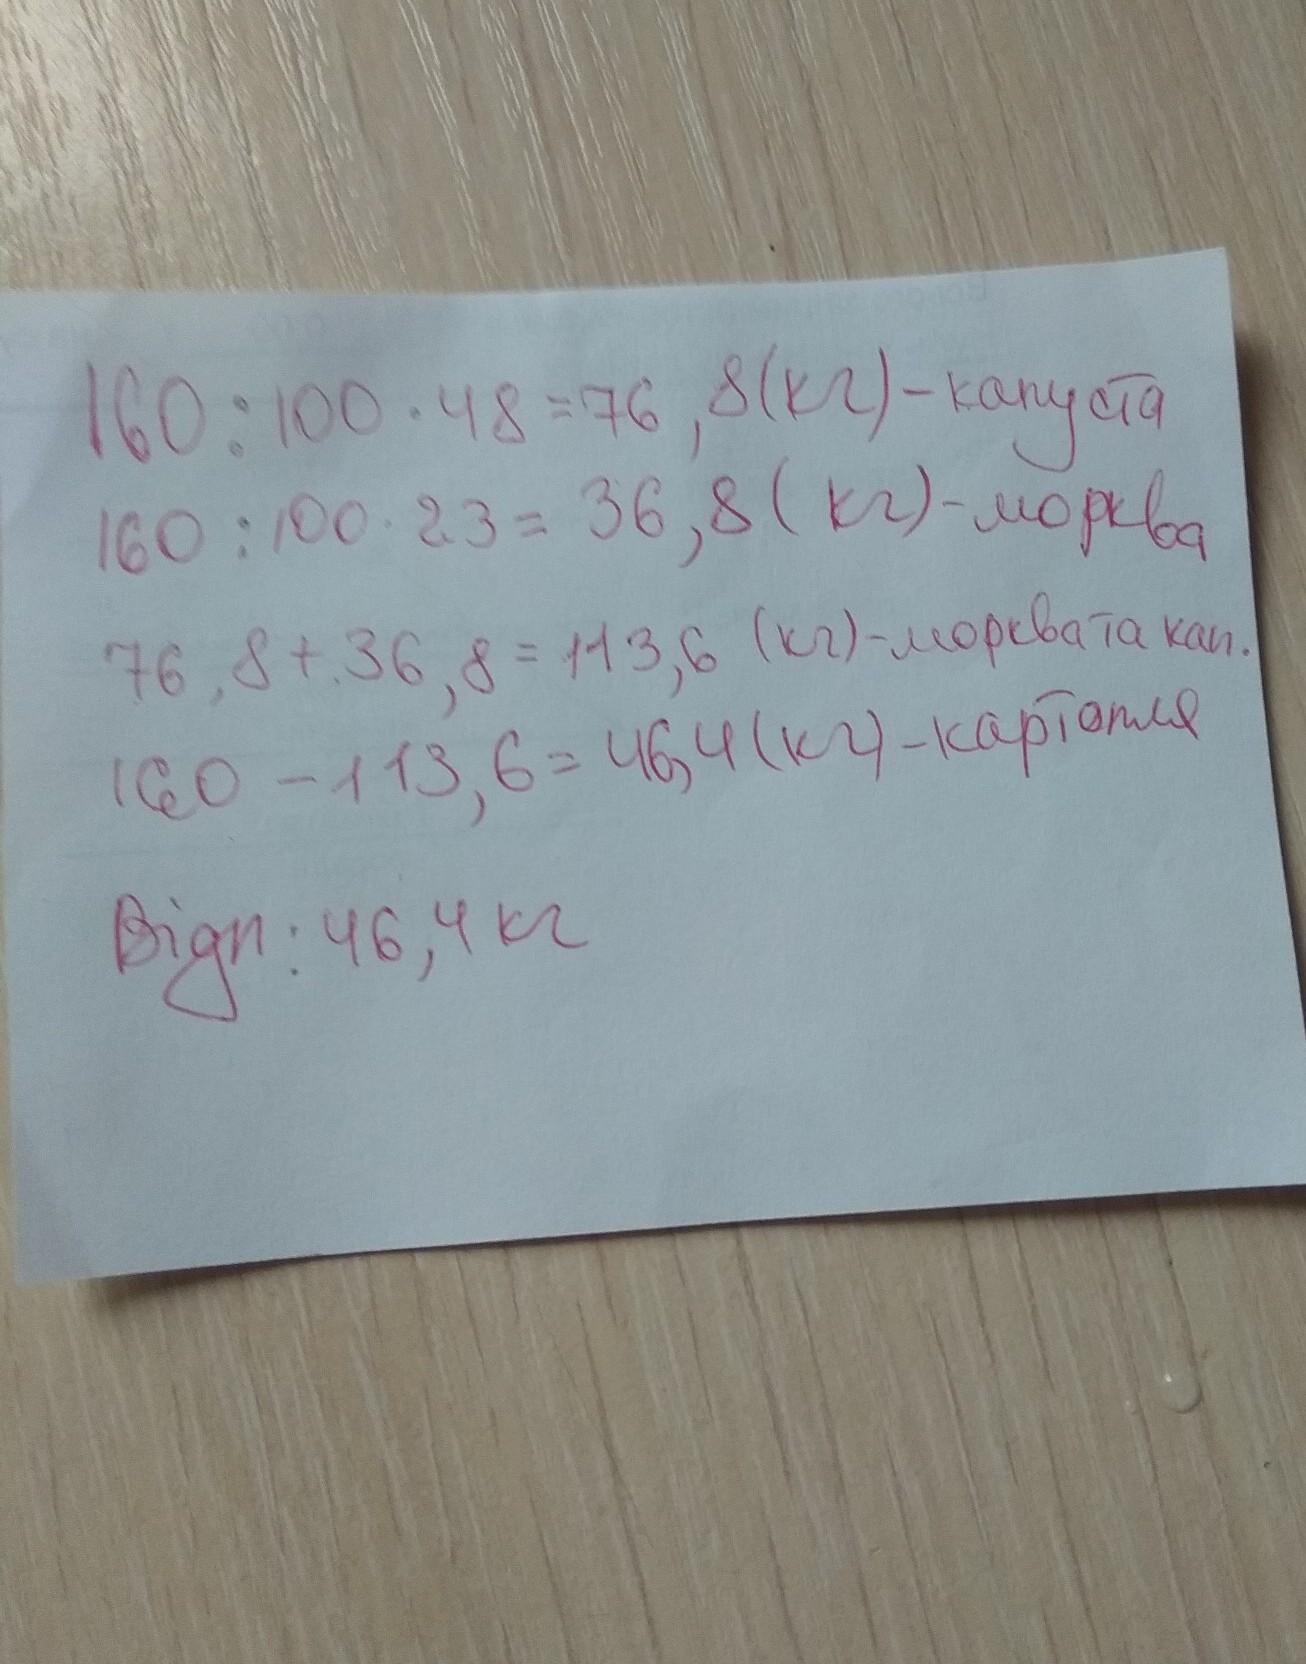 160 : 100 · 48 = 76,8 (кг) - капуста
160 : 100 · 23 = 36,8 (кг) - морква
76,8 + 36,8 = 113,6 (кг) - морква та кап.
160 - 113,6 = 46,4 (кг) - картопля
Відп: 46,4 кг